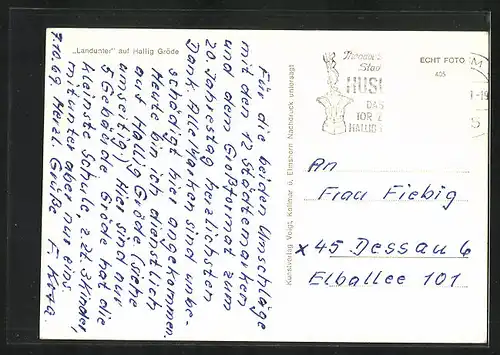 „Landunter" auf Hallig Gröde
Für die beiden Umschläge
mit den 12 Städtemarken
und dem Großformat zum
20. Jahrestag herzlichsten
Dank. Alle Marken sind unbe-
schädigt hier angekommen.
Heute bin ich dienstlich
auf Hallig Gröde (siehe
umseitig) Hier sind nur
5 Gebäude. Gröde hat die
kleinste Schule, z.Zt. 3 Kinder,
mitunter aber nur eins.
Herzl. Grüße
Kunstverlag Voigt, Kollmar ü. Elmshorn Nachdruck untersagt
HUSU
DAS
TOR Z
HALLIG
ECHT FOTO
405
M
An
Frau Fiebig
x45 Dessau 6
Elballee 101